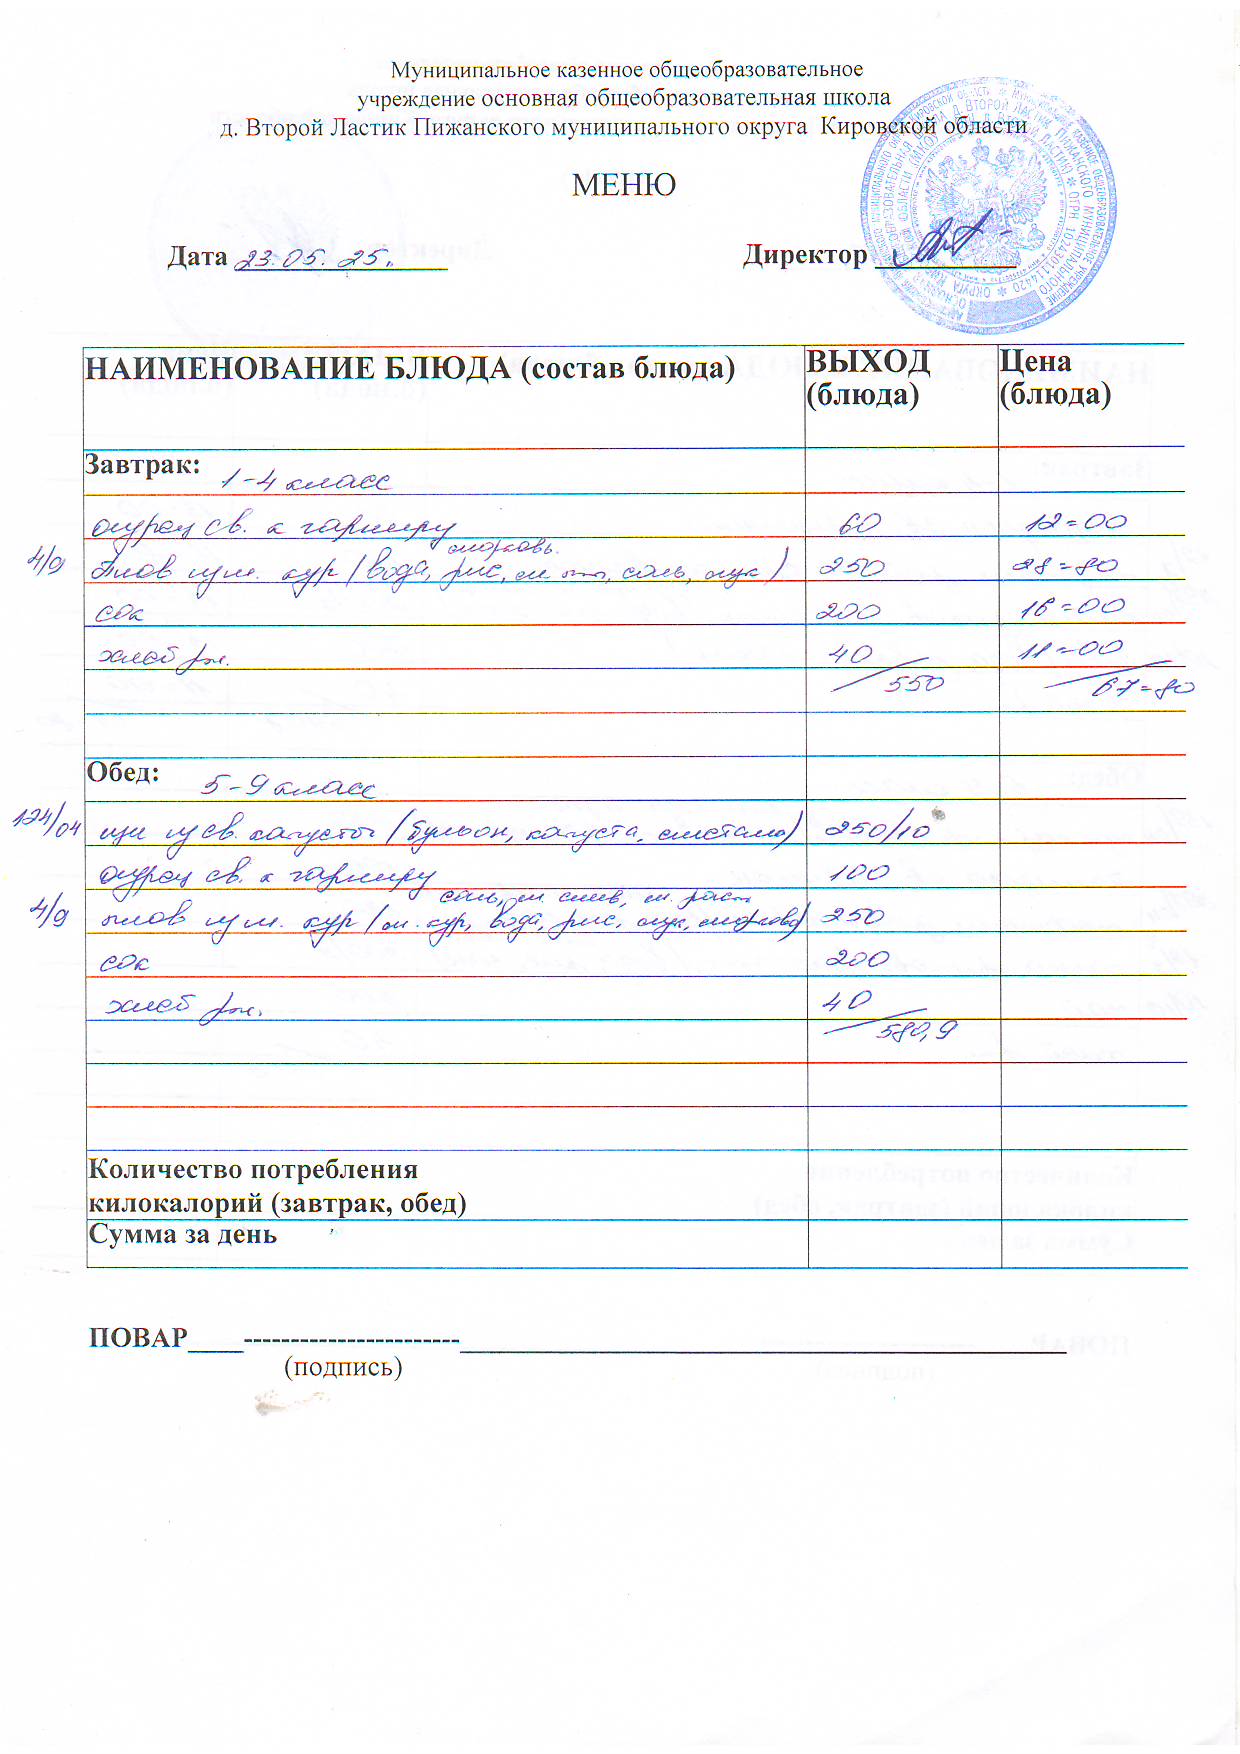 Муниципальное казенное общеобразовательное
учреждение основная общеобразовательная школа
д. Второй Ластик Пижанского муниципального округа Кировской области
МЕНЮ
Дата 23.05.25. Директор
НАИМЕНОВАНИЕ БЛЮДА (состав блюда) ВЫХОД (блюда) Цена (блюда)
Завтрак: 1-4 класс
огурец св. к гарниру 60 12=00
морковь.
4/9 Плов из м. кур (вода, рис, соль, лук) 250 28=80
сок 200 16=00
хлеб рж. 40 11=00
550 67=80
Обед: 5-9 класс
124/04 щи из св. капусты (бульон, капуста, сметана) 250/10
огурец св. к гарниру 100
соль, м. слив, м. раст.
4/9 плов из м. кур (м. кур, вода, рис, лук, морковь) 250
сок 200
хлеб рж. 40
580,9
Количество потребления
килокалорий (завтрак, обед)
Сумма за день
ПОВАР
(подпись)